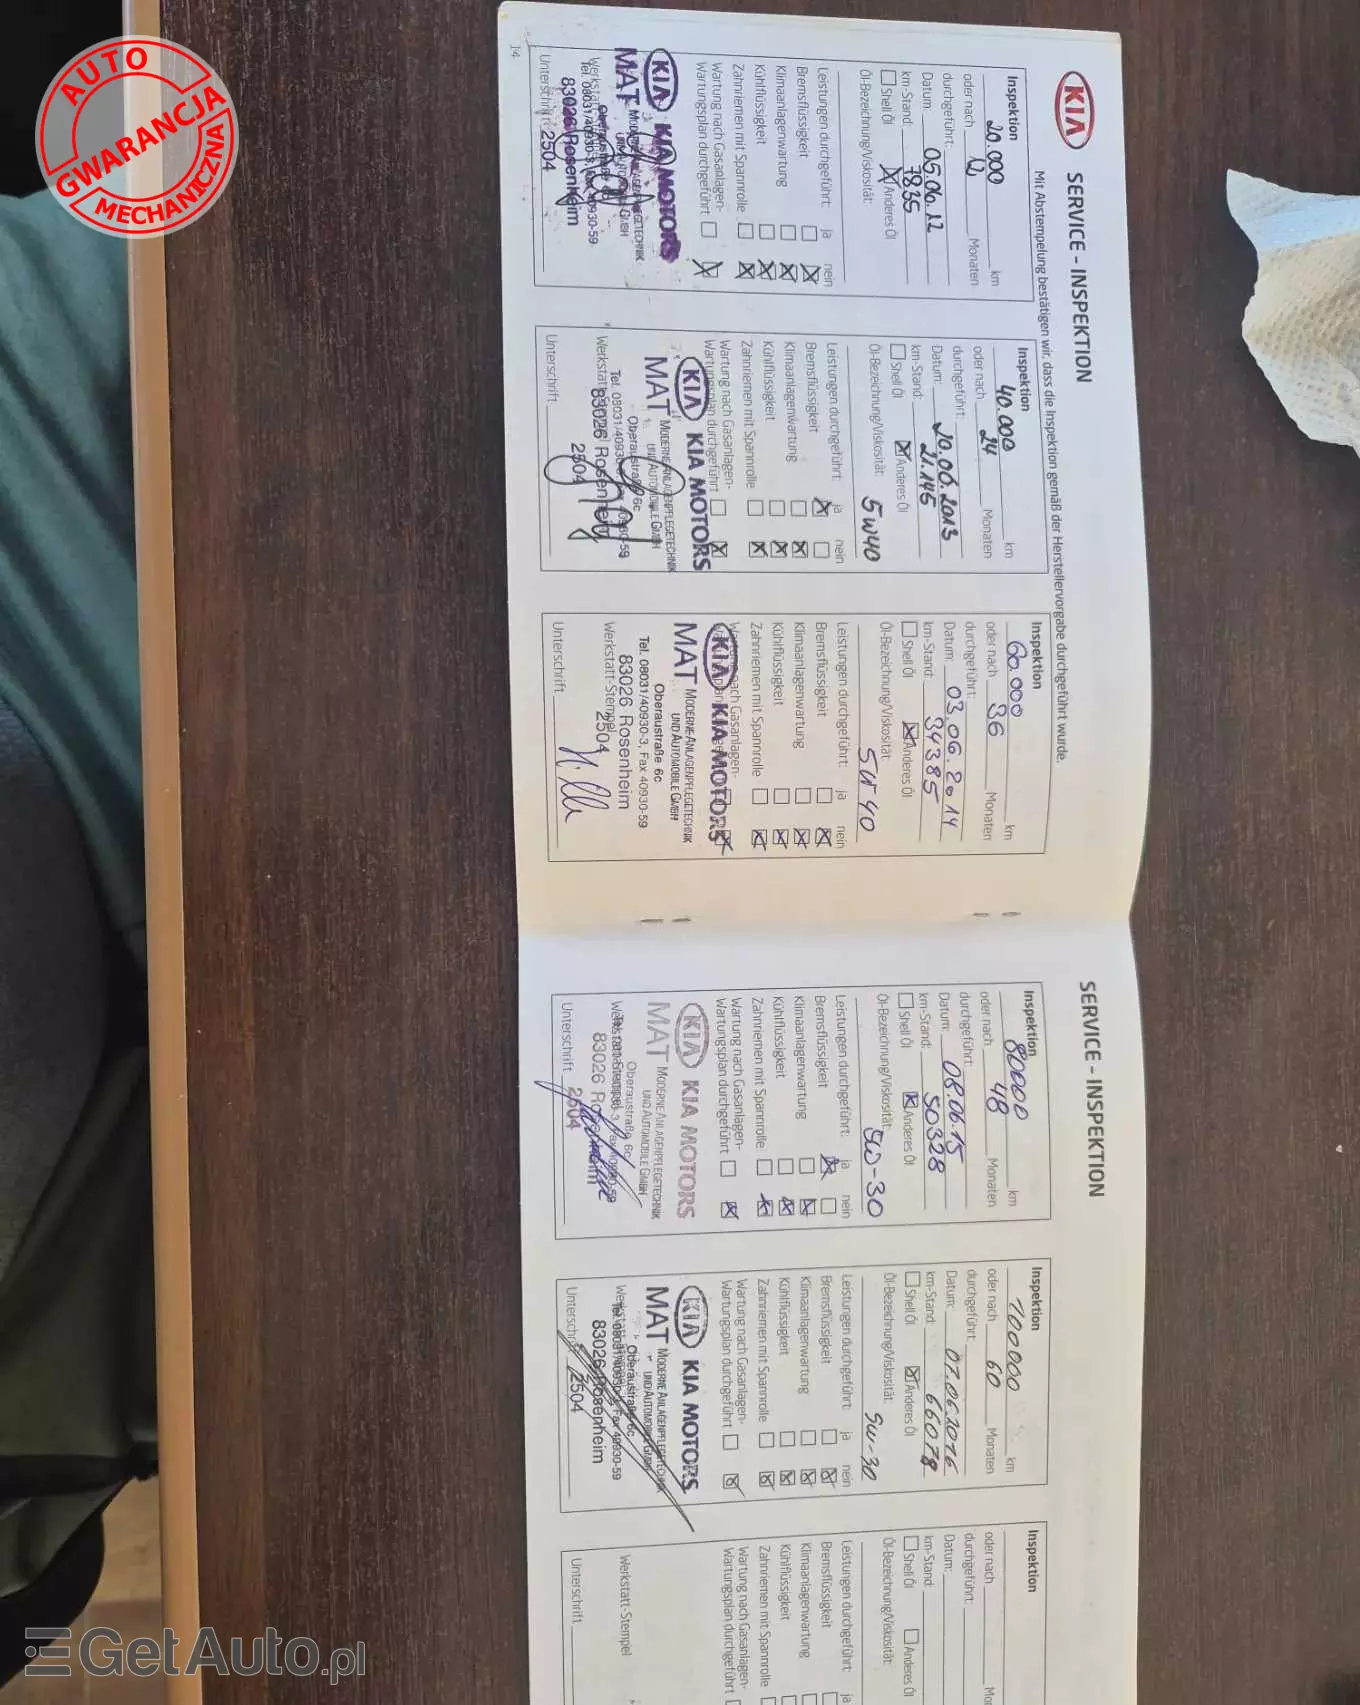 AUTO
GWARANCJA
MECHANICZNA
14
KIA SERVICE - INSPEKTION
Mit Abstempelung bestätigen wir, dass die Inspektion gemäß der Herstellervorgabe durchgeführt wurde.
Inspektion
20.000 km
oder nach 12 Monaten
durchgeführt:
Datum: 05.06.12
km-Stand: 7835
Shell Öl Anderes Öl
Öl-Bezeichnung/Viskosität:
Leistungen durchgeführt: ja nein
Bremsflüssigkeit
Klimaanlagenwartung
Kühlflüssigkeit
Zahnriemen mit Spannrolle
Wartung nach Gasanlagen-
Wartungsplan durchgeführt
KIA KIA MOTORS
MAT MODERNE ANLAGENPFLEGETECHNIK
UND AUTOMOBILE GMBH
Oberaustraße 6c
Tel. 08031/40930-3, Fax 40930-59
83026 Rosenheim
Unterschrift 2504
Inspektion
40.000 km
oder nach 24 Monaten
durchgeführt:
Datum: 20.06.2013
km-Stand: 21.145
Shell Öl Anderes Öl
Öl-Bezeichnung/Viskosität: 5W40
Leistungen durchgeführt: ja nein
Bremsflüssigkeit
Klimaanlagenwartung
Kühlflüssigkeit
Zahnriemen mit Spannrolle
Wartung nach Gasanlagen-
Wartungsplan durchgeführt
KIA KIA MOTORS
MAT MODERNE ANLAGENPFLEGETECHNIK
UND AUTOMOBILE GMBH
Oberaustraße 6c
Tel. 08031/40930-3, Fax 40930-59
83026 Rosenheim
2504
Unterschrift
Inspektion
60.000 km
oder nach 36 Monaten
durchgeführt:
Datum: 03.06.2014
km-Stand: 34385
Shell Öl Anderes Öl
Öl-Bezeichnung/Viskosität: 5W40
Leistungen durchgeführt: ja nein
Bremsflüssigkeit
Klimaanlagenwartung
Kühlflüssigkeit
Zahnriemen mit Spannrolle
Wartung nach Gasanlagen-
KIA KIA MOTORS
MAT MODERNE ANLAGENPFLEGETECHNIK
UND AUTOMOBILE GMBH
Oberaustraße 6c
Tel. 08031/40930-3, Fax 40930-59
83026 Rosenheim
Werkstatt-Stempel 2504
Unterschrift
SERVICE - INSPEKTION
Inspektion
80000 km
oder nach 48 Monaten
durchgeführt:
Datum: 08.06.15
km-Stand: 50328
Shell Öl Anderes Öl
Öl-Bezeichnung/Viskosität: 5W-30
Leistungen durchgeführt: ja nein
Bremsflüssigkeit
Klimaanlagenwartung
Kühlflüssigkeit
Zahnriemen mit Spannrolle
Wartung nach Gasanlagen-
Wartungsplan durchgeführt
KIA KIA MOTORS
MAT MODERNE ANLAGENPFLEGETECHNIK
UND AUTOMOBILE GMBH
Oberaustraße 6c
83026 Rosenheim
Unterschrift 2504
Inspektion
100000 km
oder nach 60 Monaten
durchgeführt:
Datum: 07.06.2016
km-Stand: 66078
Shell Öl Anderes Öl
Öl-Bezeichnung/Viskosität: 5W-30
Leistungen durchgeführt: ja nein
Bremsflüssigkeit
Klimaanlagenwartung
Kühlflüssigkeit
Zahnriemen mit Spannrolle
Wartung nach Gasanlagen-
Wartungsplan durchgeführt
KIA KIA MOTORS
MAT MODERNE ANLAGENPFLEGETECHNIK
UND AUTOMOBILE GMBH
Oberaustraße 6c
Tel. 08031/40930-3, Fax 40930-59
83026 Rosenheim
Unterschrift 2504
Inspektion
oder nach
durchgeführt:
Datum:
km-Stand:
Shell Öl Anderes Öl
Öl-Bezeichnung/Viskosität:
Leistungen durchgeführt: ja
Bremsflüssigkeit
Klimaanlagenwartung
Kühlflüssigkeit
Zahnriemen mit Spannrolle
Wartung nach Gasanlagen-
Wartungsplan durchgeführt
Werkstatt-Stempel
Unterschrift
GetAuto.pl